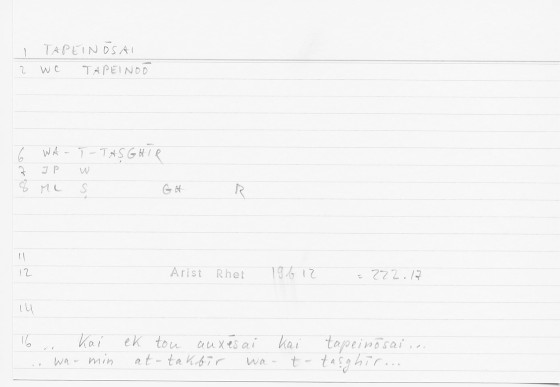 1 TAPEINŌSAI
2 WC TAPEINOŌ
6 WA-T-TAṢGHĪR
7 JP W
8 ML Ṣ GH R
11
12 Arist Rhet 19612 = 222.17
14
16 .. kai ek tou auxēsai kai tapeinōsai...
.. wa-min at-takbīr wa-t-taṣghīr...